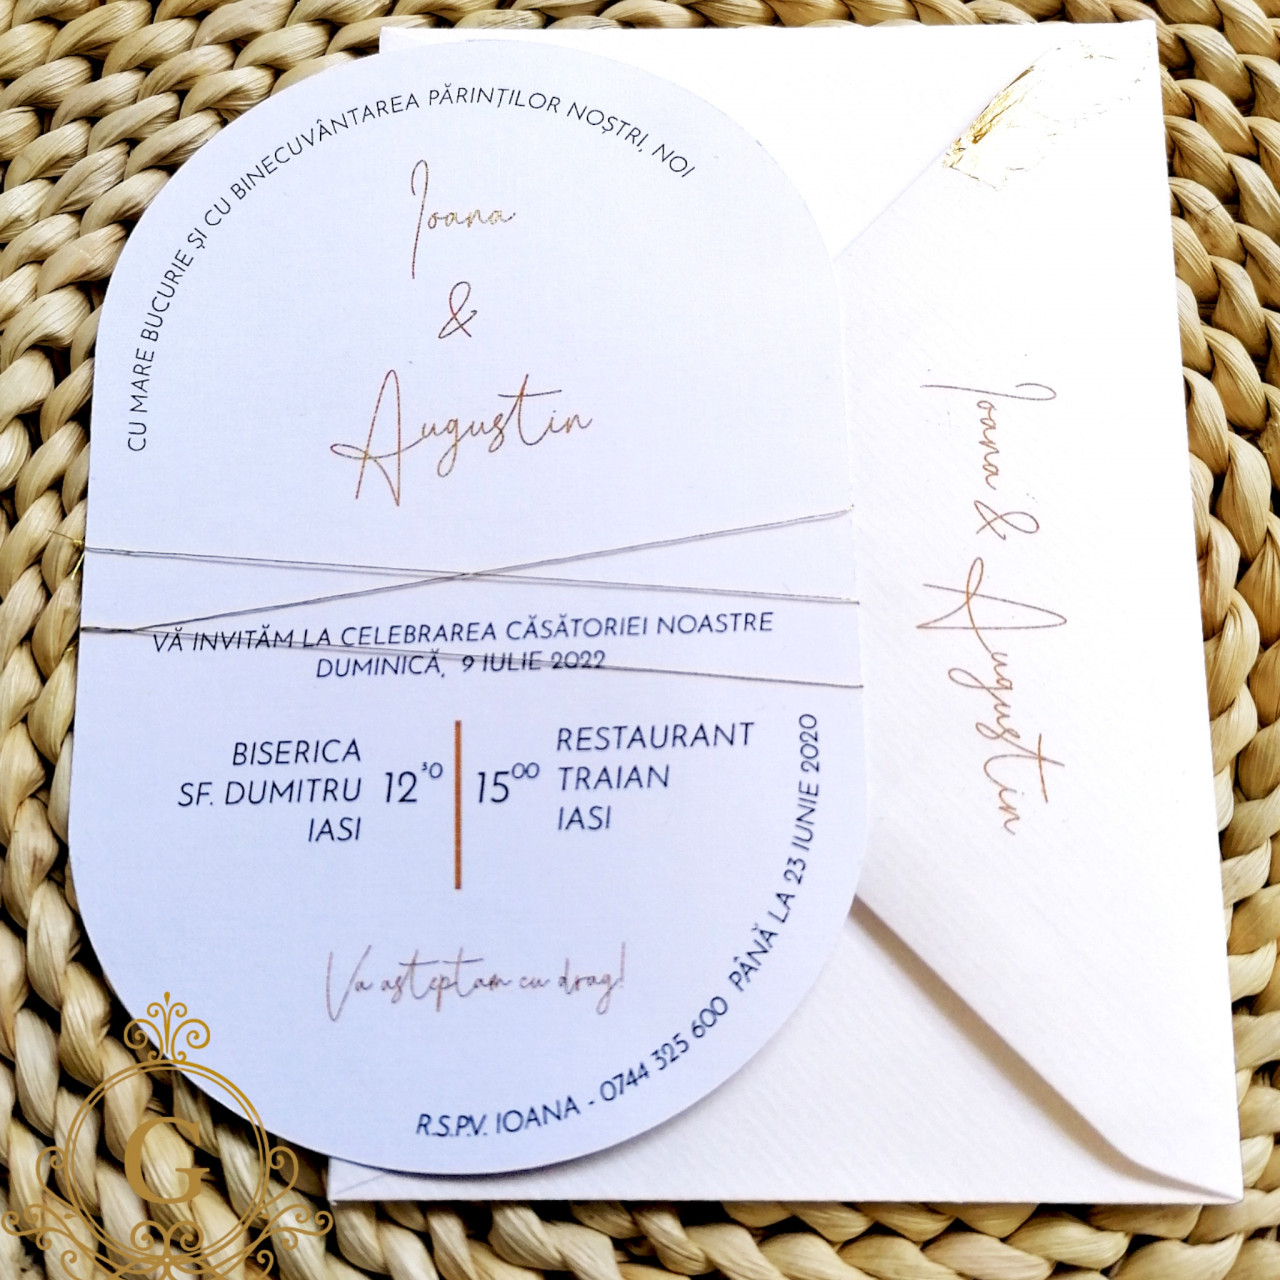 CU MARE BUCURIE ȘI CU BINECUVÂNTAREA PĂRINȚILOR NOȘTRI, NOI
Ioana
&
Augustin
VĂ INVITĂM LA CELEBRAREA CĂSĂTORIEI NOASTRE
DUMINICĂ, 9 IULIE 2022
BISERICA
SF. DUMITRU
IASI
12³⁰
15⁰⁰
RESTAURANT
TRAIAN
IASI
Va asteptam cu drag!
R.S.P.V. IOANA - 0744 325 600 PÂNĂ LA 23 IUNIE 2020
Ioana & Augustin
G